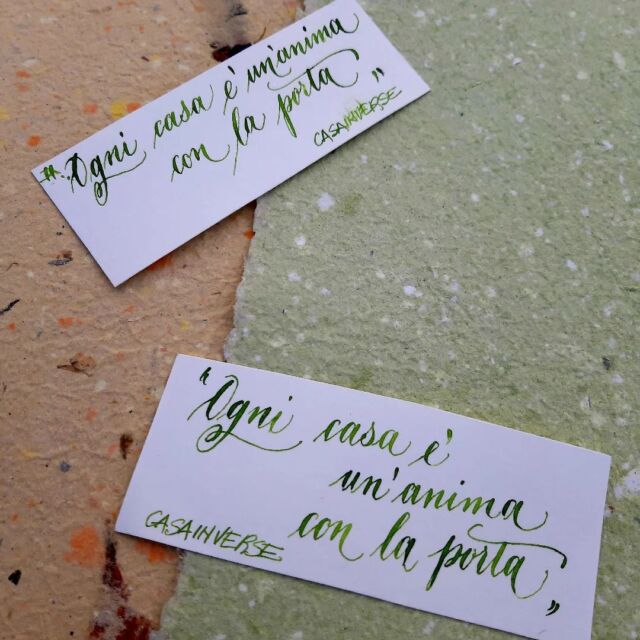 "Ogni casa è un'anima
con la porta"
CASAINVERSE
"Ogni casa è
un'anima
con la porta"
CASAINVERSE